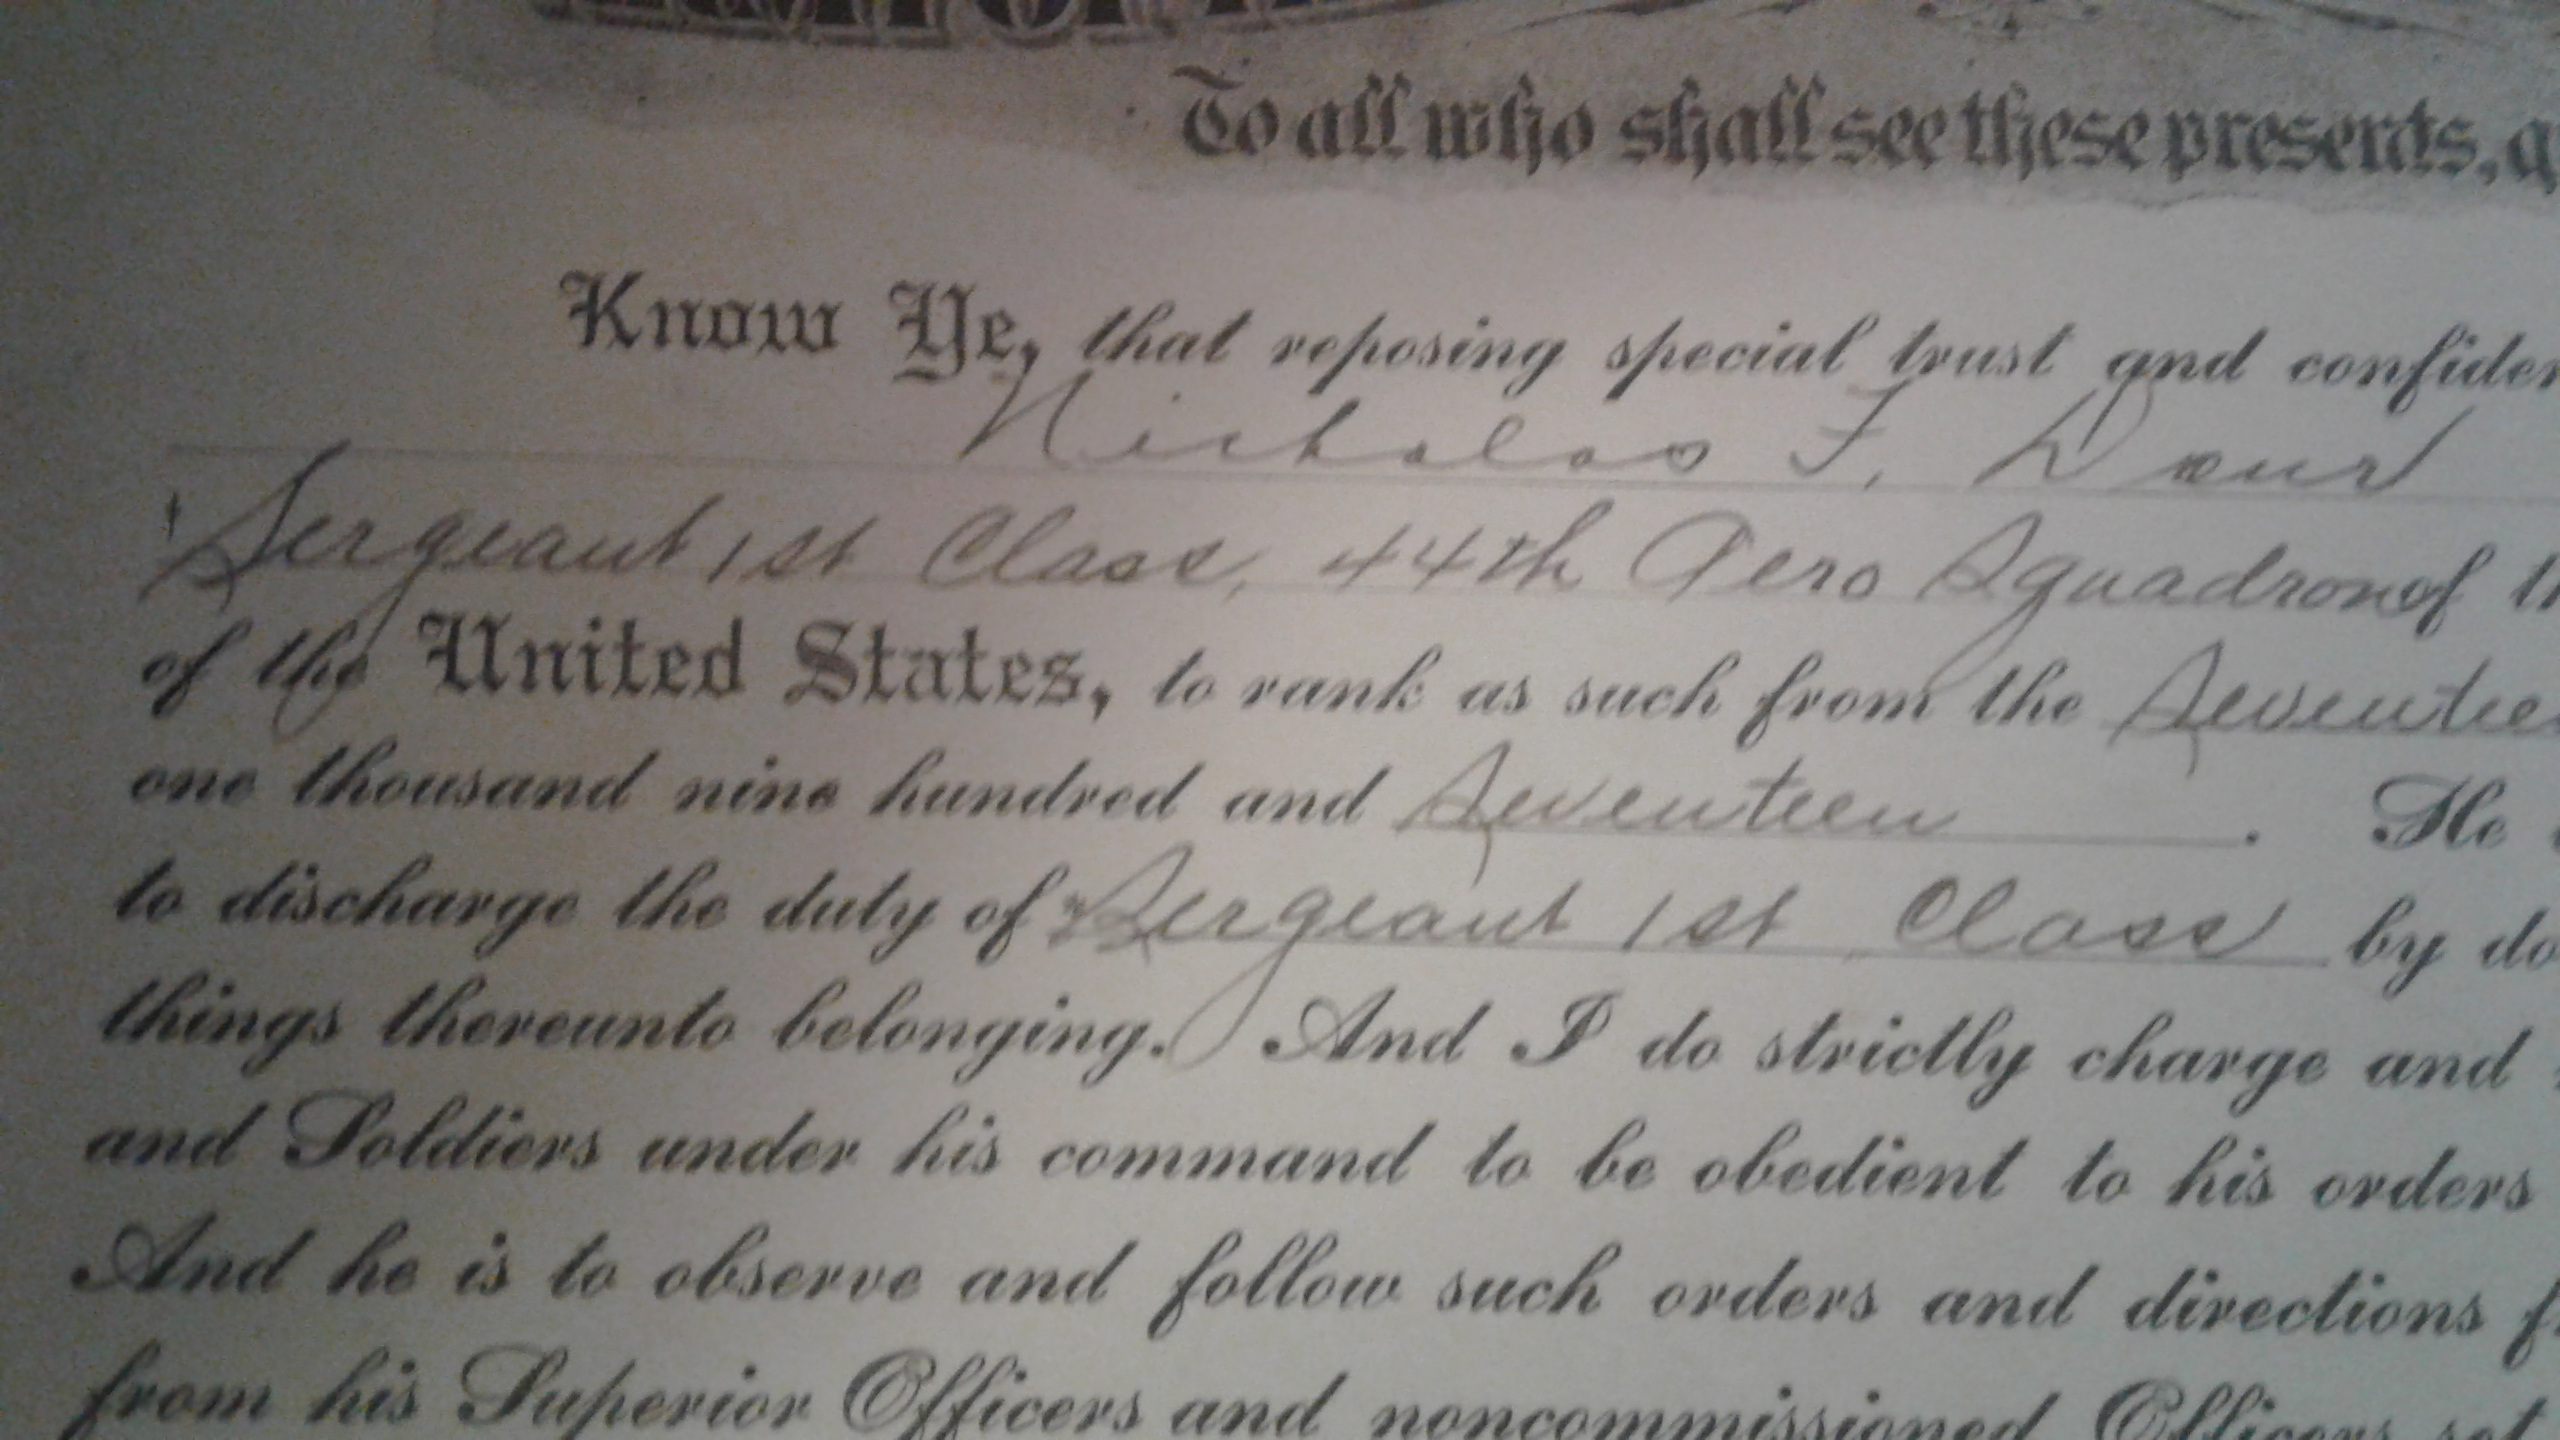 To all who shall see these presents,
Know Ye, that reposing special trust and
Nicholas F.
Sergeant 1st Class, 44th Aero Squadron of
of the United States, to rank as such from the
one thousand nine hundred and Seventeen . He
to discharge the duty of Sergeant 1st Class by
things thereunto belonging. And I do strictly charge and
and Soldiers under his command to be obedient to his orders
And he is to observe and follow such orders and directions
from his Superior Officers and noncommissioned Officers